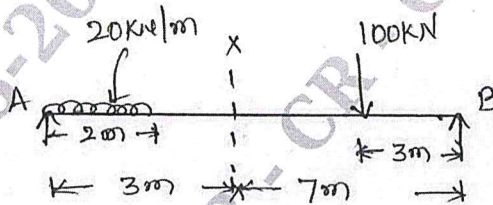 20KN/m
X
100KN
A
B
2m
3m
3m
X
7m